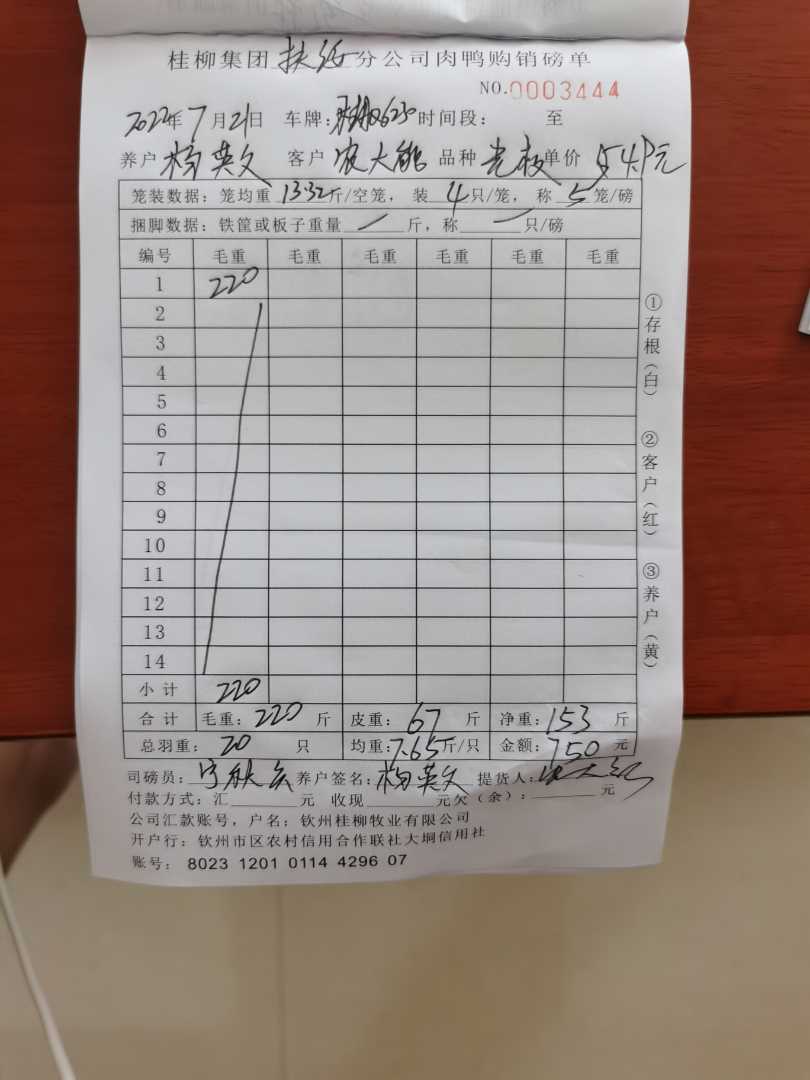 桂柳集团 扶绥 分公司肉鸭购销磅单
NO.0003444
2022年7月21日 车牌: 时间段: 至
养户 杨英文 客户 农大能 品种 单价 元
笼装数据：笼均重 13.32 斤/空笼， 装 4 只/笼， 称 5 笼/磅
捆脚数据：铁筐或板子重量 / 斤，称 / 只/磅
编号 毛重 毛重 毛重 毛重 毛重 毛重
1 220
2
3
4
5
6
7
8
9
10
11
12
13
14
小计 220
合计 毛重：220 斤 皮重：67 斤 净重：153 斤
总羽重：20 只 均重：7.65斤/只 金额：750 元
司磅员： 养户签名：杨英文 提货人：
付款方式：汇 元 收现 元欠（余）： 元
公司汇款账号，户名：钦州桂柳牧业有限公司
开户行：钦州市区农村信用合作联社大垌信用社
账号： 8023 1201 0114 4296 07
①存根（白）
②客户（红）
③养户（黄）